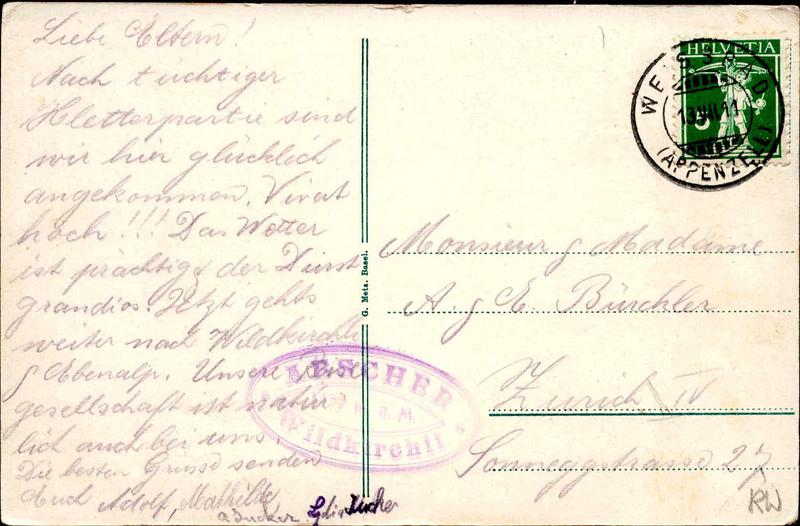 Liebe Eltern!
Nach tüchtiger
Kletterpartie sind
wir hier glücklich
angekommen. Vivat
hoch!!! Das Wetter
ist prächtig & der Durst
grandios. Jetzt gehts
weiter nach Wildkirchli
& Ebenalp. Unsere Reise
gesellschaft ist natür
lich auch bei uns.
Die besten Grüsse senden
Euch Adolf, Mathilde
G. Metz, Basel.
HELVETIA
5
WEISSBAD
13 VII 11
(APPENZELL)
Monsieur & Madame
A. & E. Büchler
Zürich IV
Sonneggstrasse 27
AESCHER
Wildkirchli
RW